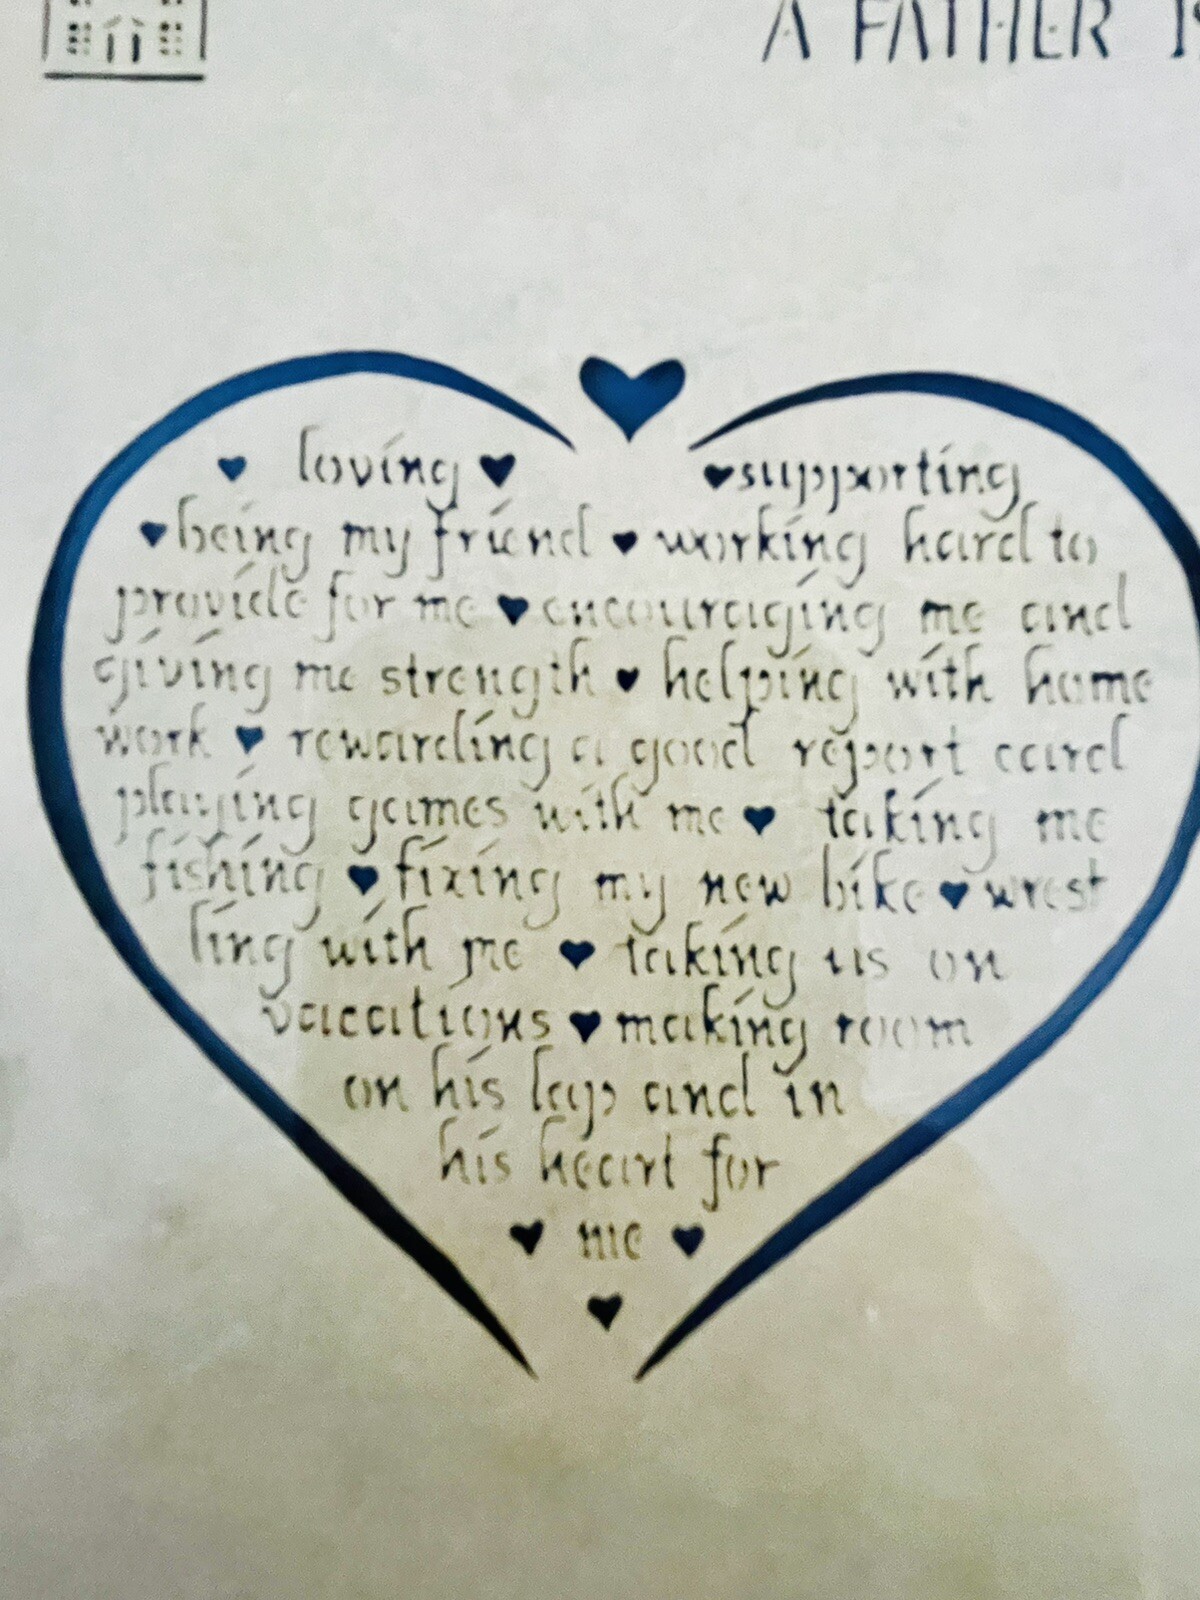 A FATHER IS
♥ loving ♥ ♥ supporting
♥ being my friend ♥ working hard to
provide for me ♥ encouraging me and
giving me strength ♥ helping with home
work ♥ rewarding a good report card
playing games with me ♥ taking me
fishing ♥ fixing my new bike ♥ wrest
ling with me ♥ taking us on
vacations ♥ making room
on his lap and in
his heart for
♥ me ♥